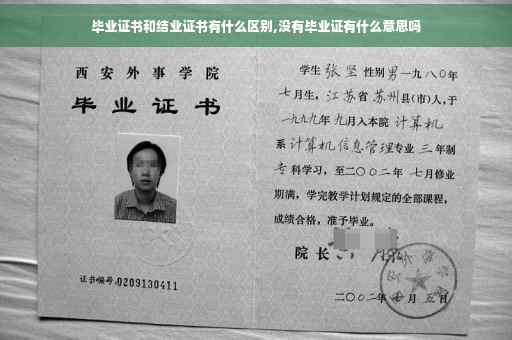 毕业证书和结业证书有什么区别,没有毕业证有什么意思吗
西安外事学院
毕业证书
证书编号:0209130411
学生 张坚 性别男一九八〇年
七月生,江苏省苏州县(市)人,于
一九九九年九月入本院 计算机
系计算机信息管理专业三年制
专科学习,至二〇〇二年七月修业
期满,学完教学计划规定的全部课程,
成绩合格,准予毕业。
院长
二〇〇二年 月五日